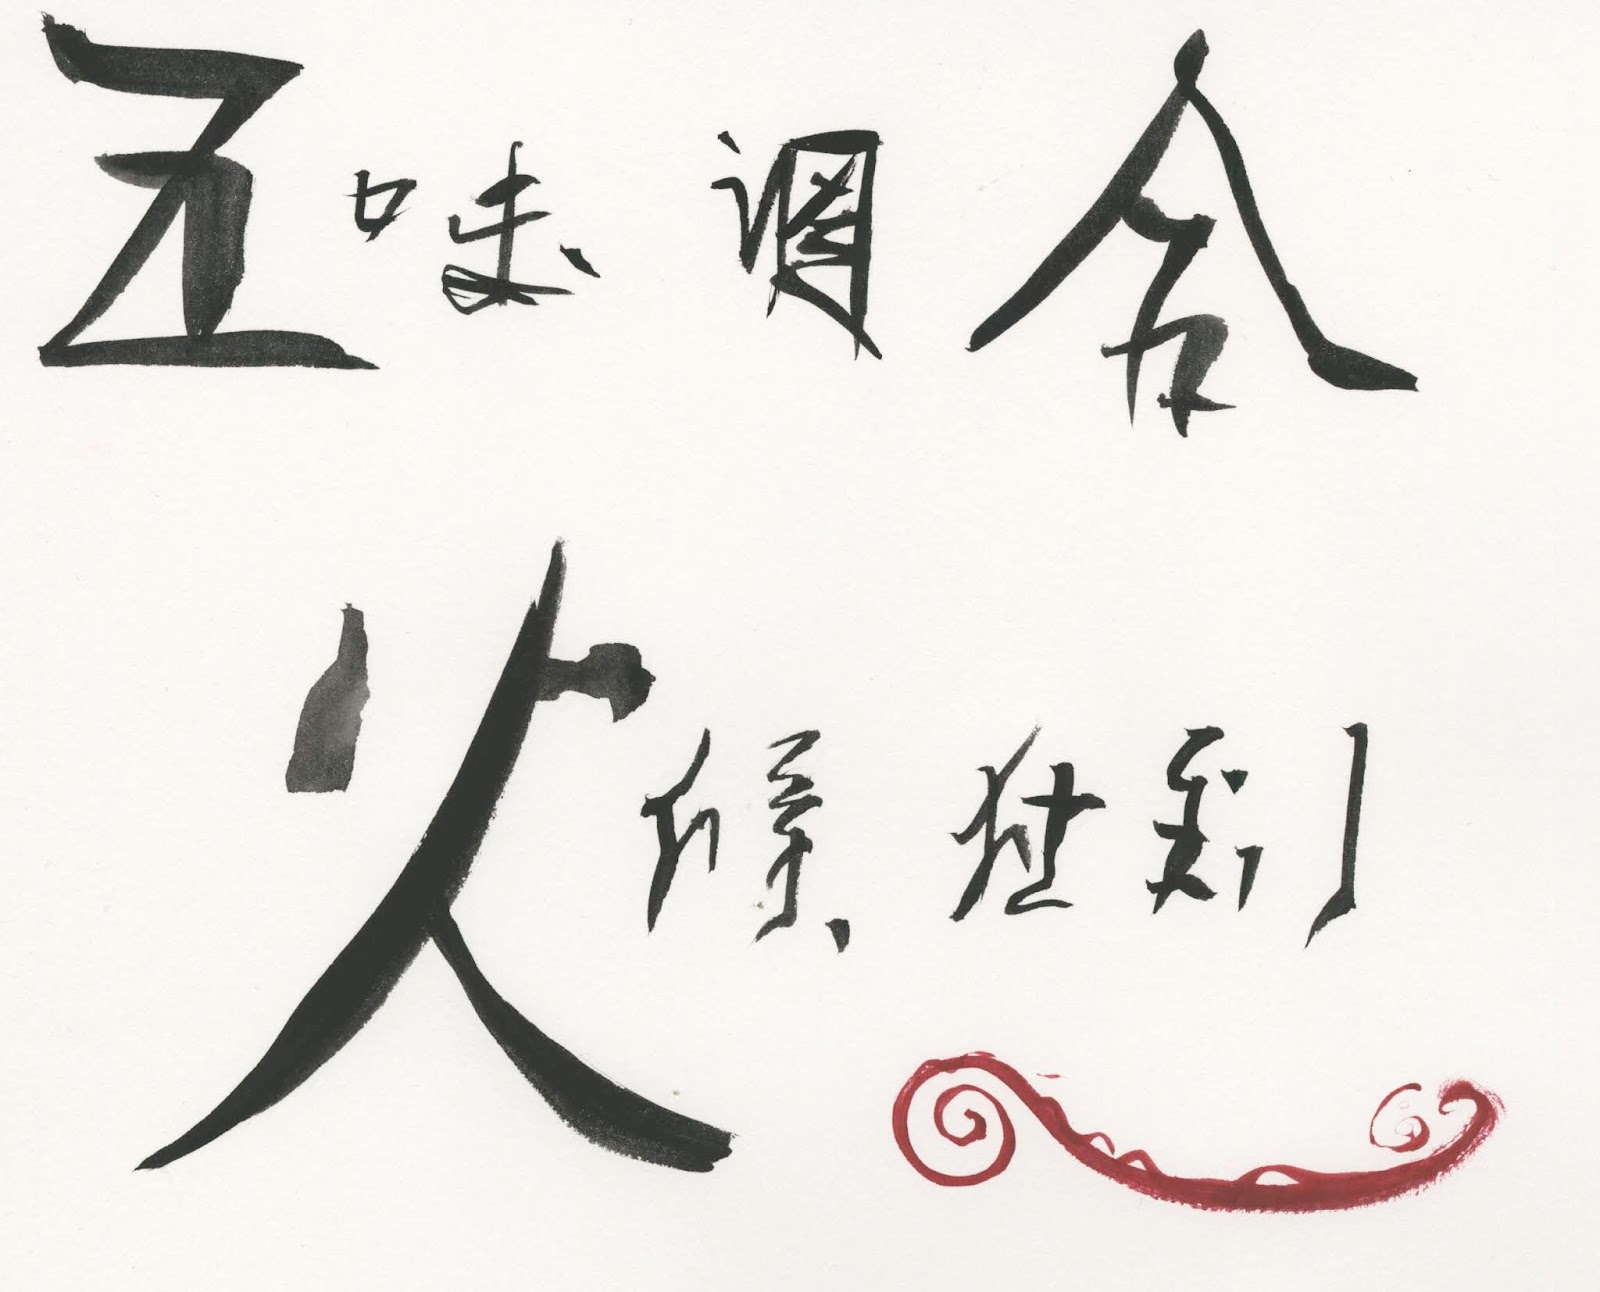 五味调合
火候独到